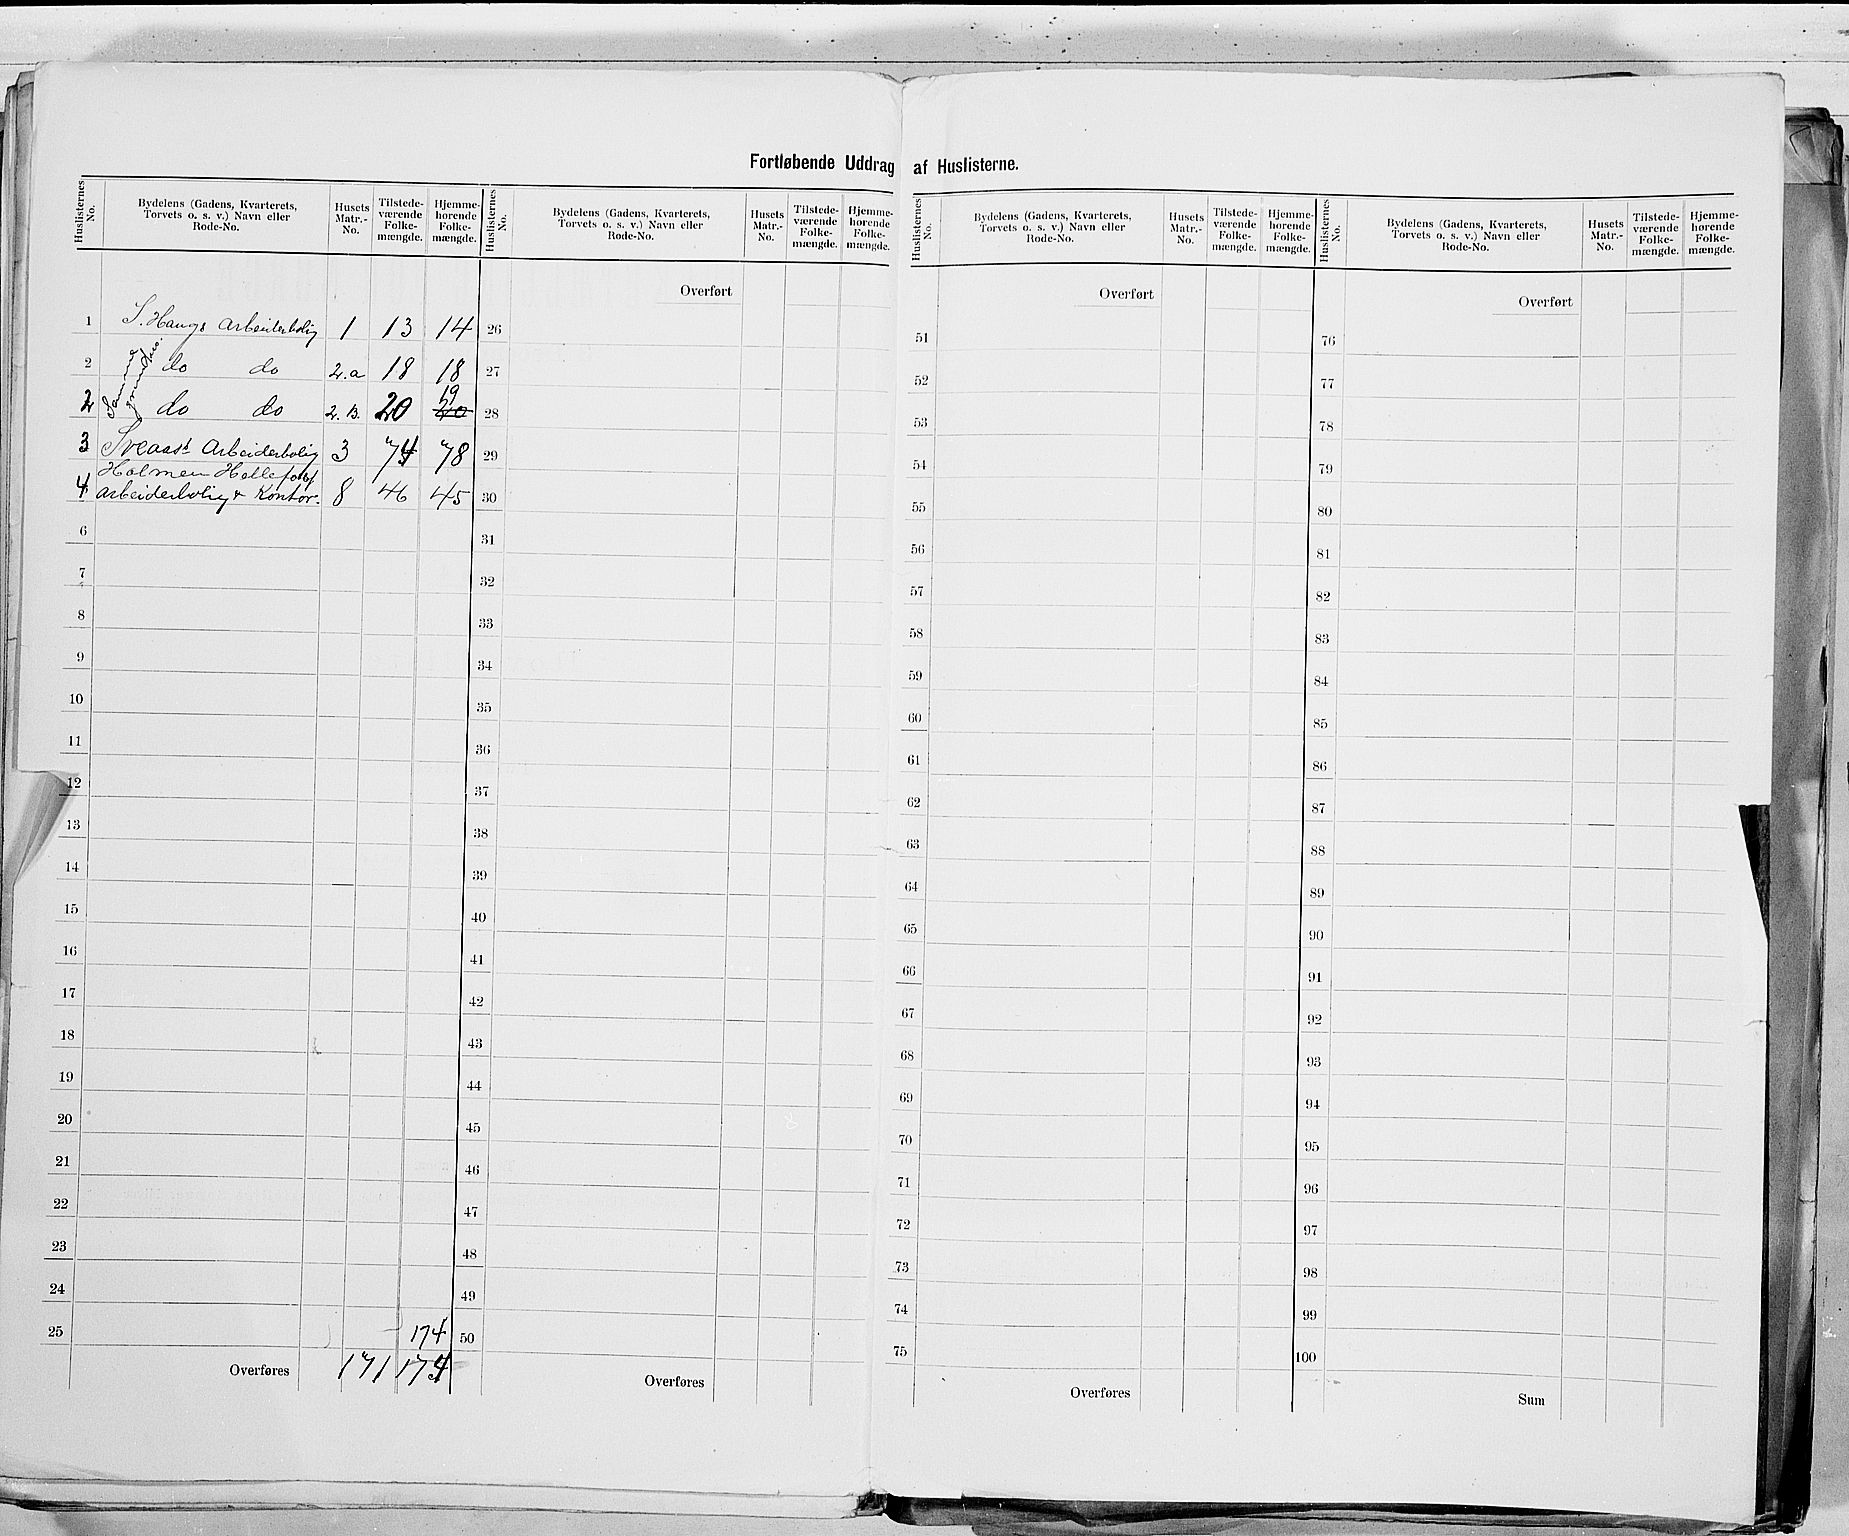 Fortløbende Uddrag af Huslisterne.
Huslisternes No. | Bydelens (Gadens, Kvarterets, Torvets o. s. v.) Navn eller Rode-No. | Husets Matr.-No. | Tilstede-værende Folke-mængde. | Hjemme-hørende Folke-mængde.
1 S. Haugs Arbeiderbolig 1 13 14
2 do do 2.a 18 18
2 do do 2.B. 20 19 20
3 Sveaast Arbeiderbolig 3 74 78
Holmen Hellefos
4 arbeiderbolig & Kontor. 8 46 45
6
7
8
9
10
11
12
13
14
15
16
17
18
19
20
21
22
23
24
25 174
Overføres 171 174
Huslisternes No. | Bydelens (Gadens, Kvarterets, Torvets o. s. v.) Navn eller Rode-No. | Husets Matr.-No. | Tilstede-værende Folke-mængde. | Hjemme-hørende Folke-mængde.
Overført
26
27
28
29
30
31
32
33
34
35
36
37
38
39
40
41
42
43
44
45
46
47
48
49
50
Overføres
Huslisternes No. | Bydelens (Gadens, Kvarterets, Torvets o. s. v.) Navn eller Rode-No. | Husets Matr.-No. | Tilstede-værende Folke-mængde. | Hjemme-hørende Folke-mængde.
Overført
51
52
53
54
55
56
57
58
59
60
61
62
63
64
65
66
67
68
69
70
71
72
73
74
75
Overføres
Huslisternes No. | Bydelens (Gadens, Kvarterets, Torvets o. s. v.) Navn eller Rode-No. | Husets Matr.-No. | Tilstede-værende Folke-mængde. | Hjemme-hørende Folke-mængde.
Overført
76
77
78
79
80
81
82
83
84
85
86
87
88
89
90
91
92
93
94
95
96
97
98
99
100
Sum